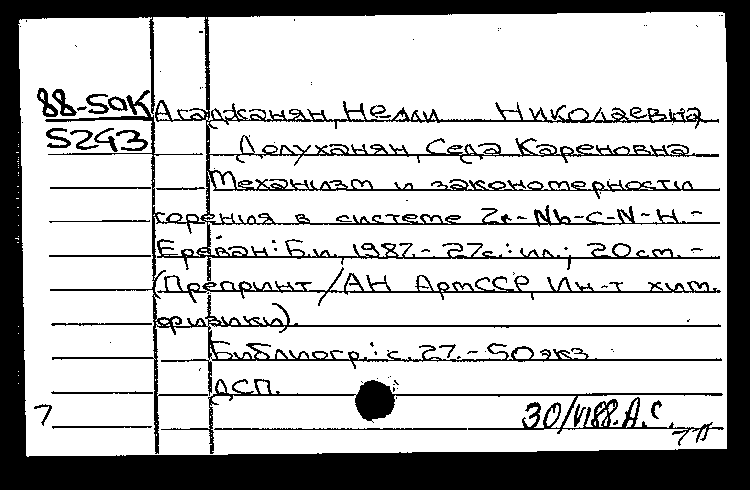 88-50К Агаджанян, Нелли Николаевна
5243 Долуханян, Седа Кареновна
Механизм и закономерности
горения в системе Zr-Nb-C-N-H.-
Ереван: Б.и., 1987.- 27с.: ил.; 20см.-
(Препринт / АН АрмССР, Ин-т хим.
физики).
Библиогр.: с. 27.- 50 экз.
ДСП.
7 30/VI88. А.С.